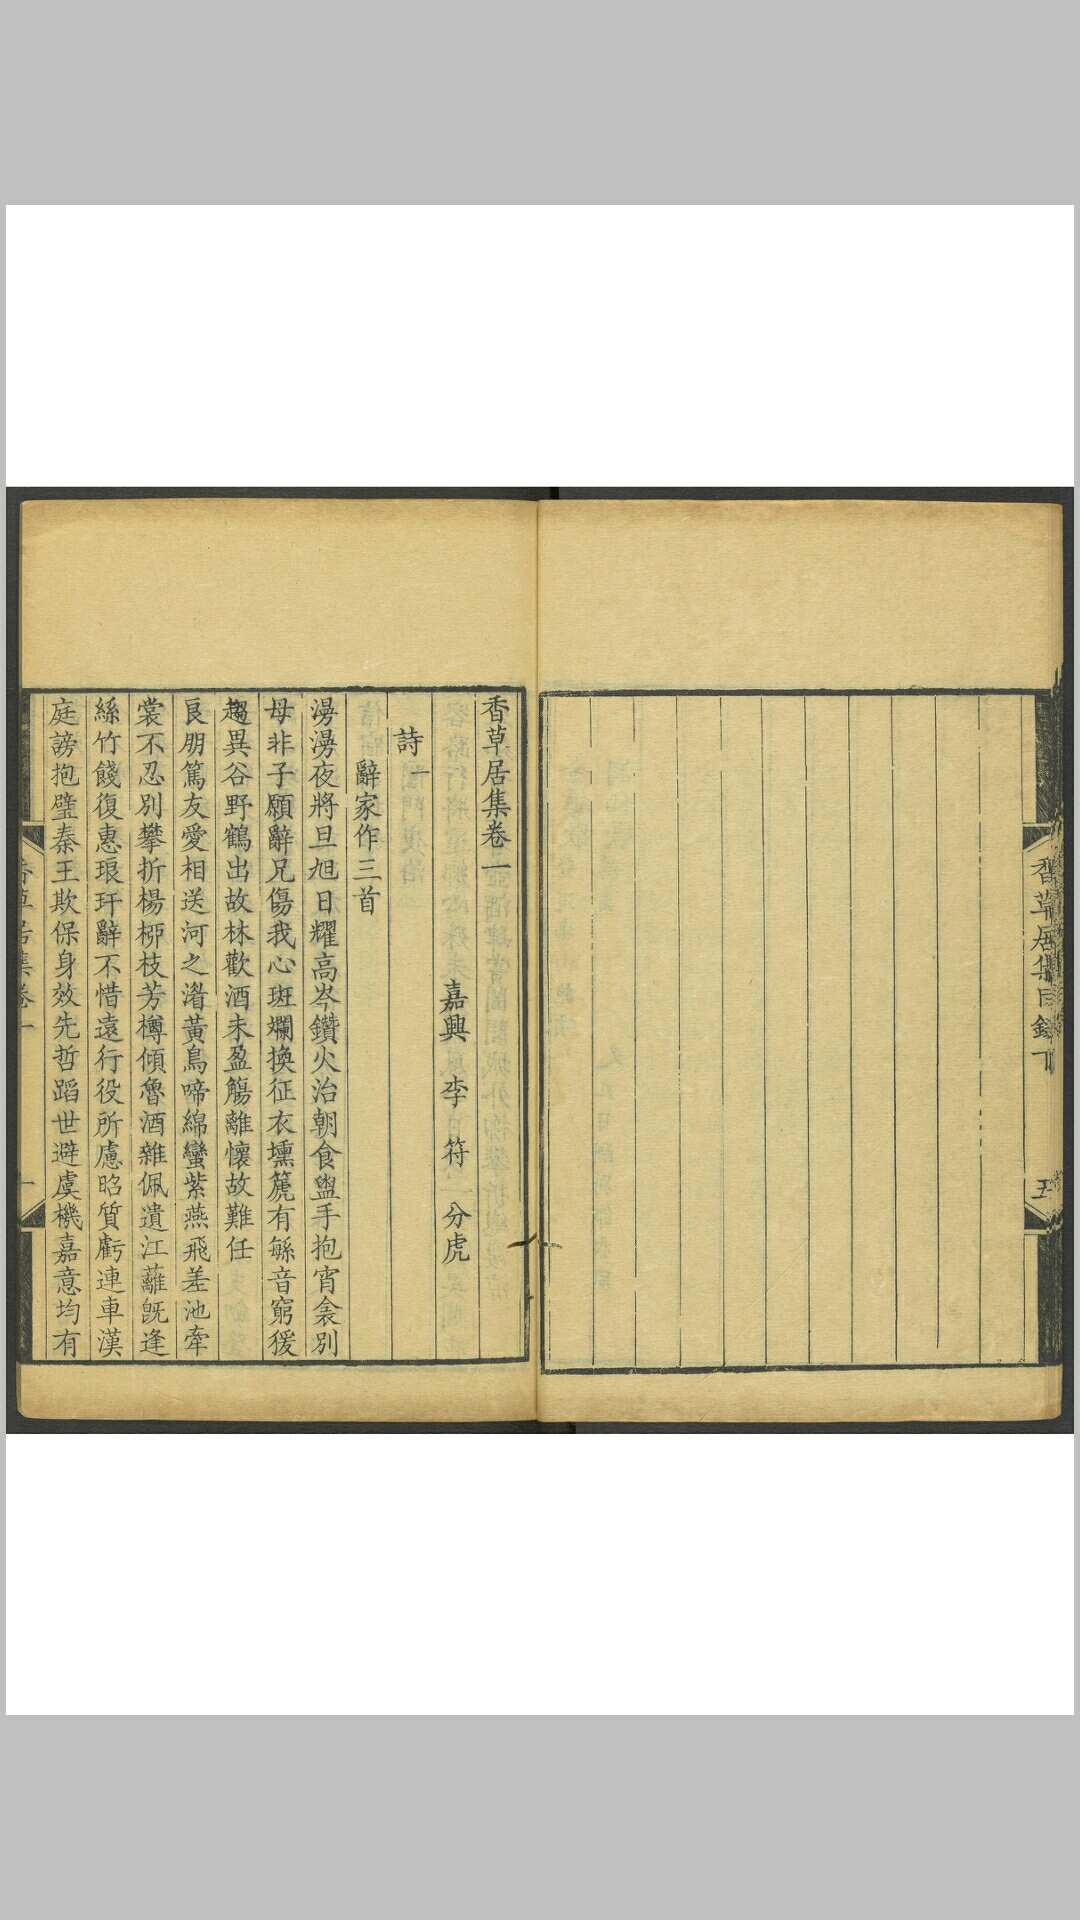 香草居集目錄下
五
香草居集卷一
嘉興 李 符 分虎
詩一
辭家作三首
漫漫夜將旦旭日耀高岑鑽火治朝食盥手抱宵衾別
母非子願辭兄傷我心班斕換征衣壎篪有緐音窮猨
趨異谷野鶴出故林歡酒未盈觴離懷故難任
良朋篤友愛相送河之渚黃鳥啼綿蠻紫燕飛差池牽
裳不忍別攀折楊桺枝芳樽傾魯酒雜佩遺江蘺旣逢
絲竹餞復惠琅玕辭不惜遠行役所慮昭質虧連車漢
庭謗抱璧秦王欺保身效先哲蹈世避虞機嘉意均有
香草居集卷一
一